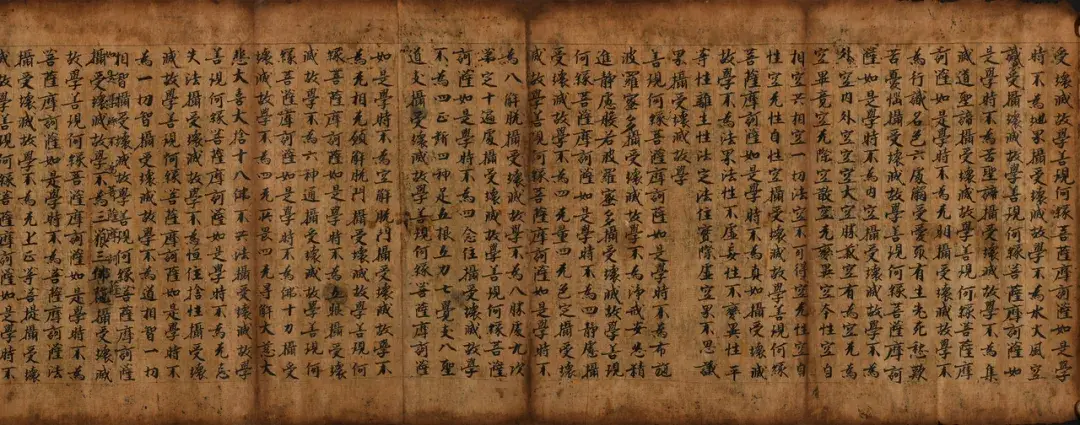 受壞滅故學善現何緣菩薩摩訶薩如是學
時不為地界攝受壞滅故學不為水火風空
識受攝壞滅故學善現何緣菩薩摩訶薩如
是學時不為苦聖諦攝受壞滅故學不為集
滅道聖諦攝受壞滅故學善現何緣菩薩摩
訶薩如是學時不為无明攝受壞滅故學不
為行識名色六處觸受愛取有生老死愁歎
苦憂惱攝受壞滅故學善現何緣菩薩摩訶
薩如是學時不為內空攝受壞滅故學不為
外空內外空空空大空勝義空有為空无為
空畢竟空无際空散空无變異空本性空自
相空共相空一切法空不可得空无性空自
性空无性自性空攝受壞滅故學善現何緣
菩薩摩訶薩如是學時不為真如攝受壞滅
故學不為法界法性不虛妄性不變異性平
等性離生性法定法住實際虛空界不思議
界攝受壞滅故學
善現何緣菩薩摩訶薩如是學時不為布施
波羅蜜多攝受壞滅故學不為淨戒安忍精
進靜慮般若波羅蜜多攝受壞滅故學善現
何緣菩薩摩訶薩如是學時不為四靜慮攝
受壞滅故學不為四无量四无色定攝受壞
滅故學善現何緣菩薩摩訶薩如是學時不
為八解脫攝受壞滅故學不為八勝處九次
第定十遍處攝受壞滅故學善現何緣菩薩摩
訶薩如是學時不為四念住攝受壞滅故學
不為四正斷四神足五根五力七覺支八聖
道支攝受壞滅故學善現何緣菩薩摩訶薩
如是學時不為空解脫門攝受壞滅故學
不為无相无願解脫門攝受壞滅故學善現何
緣菩薩摩訶薩如是學時不為五眼攝受壞
滅故學不為六神通攝受壞滅故學善現何
緣菩薩摩訶薩如是學時不為佛十力攝受
壞滅故學不為四无所畏四无礙解大慈大
悲大喜大捨十八佛不共法攝受壞滅故學
善現何緣菩薩摩訶薩如是學時不為无忘
失法攝受壞滅故學不為恒住捨性攝受壞
滅故學善現何緣菩薩摩訶薩如是學時不
為一切智攝受壞滅故學不為道相智一切
相智攝受壞滅故學善現何緣菩薩摩訶薩
攝受壞滅故學不為三攝受壞滅
故學善現何緣菩薩摩訶薩如是學時不
菩薩摩訶薩如是學時不為菩薩摩訶薩法
攝受壞滅故學不為无上正等菩提攝受壞
滅故學善現何緣菩薩摩訶薩如是學時不